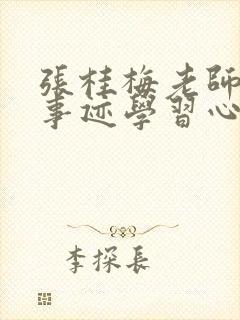 張桂梅老師
事迹學習心
李探長